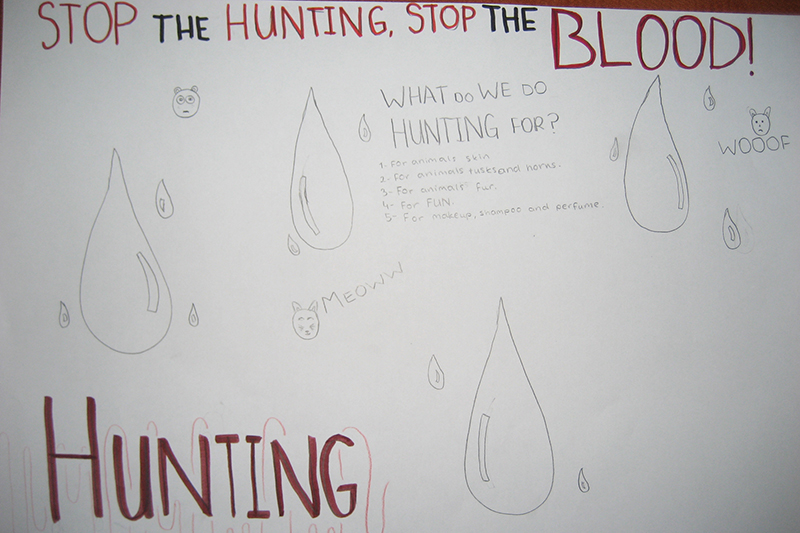 STOP THE HUNTING, STOP THE BLOOD!
WHAT DO WE DO
HUNTING FOR?
1- For animals skin
2- For animals tusks and horns.
3- For animals' fur.
4- For FUN.
5- For makeup, shampoo and perfume.
WOOOF
MEOWW
HUNTING